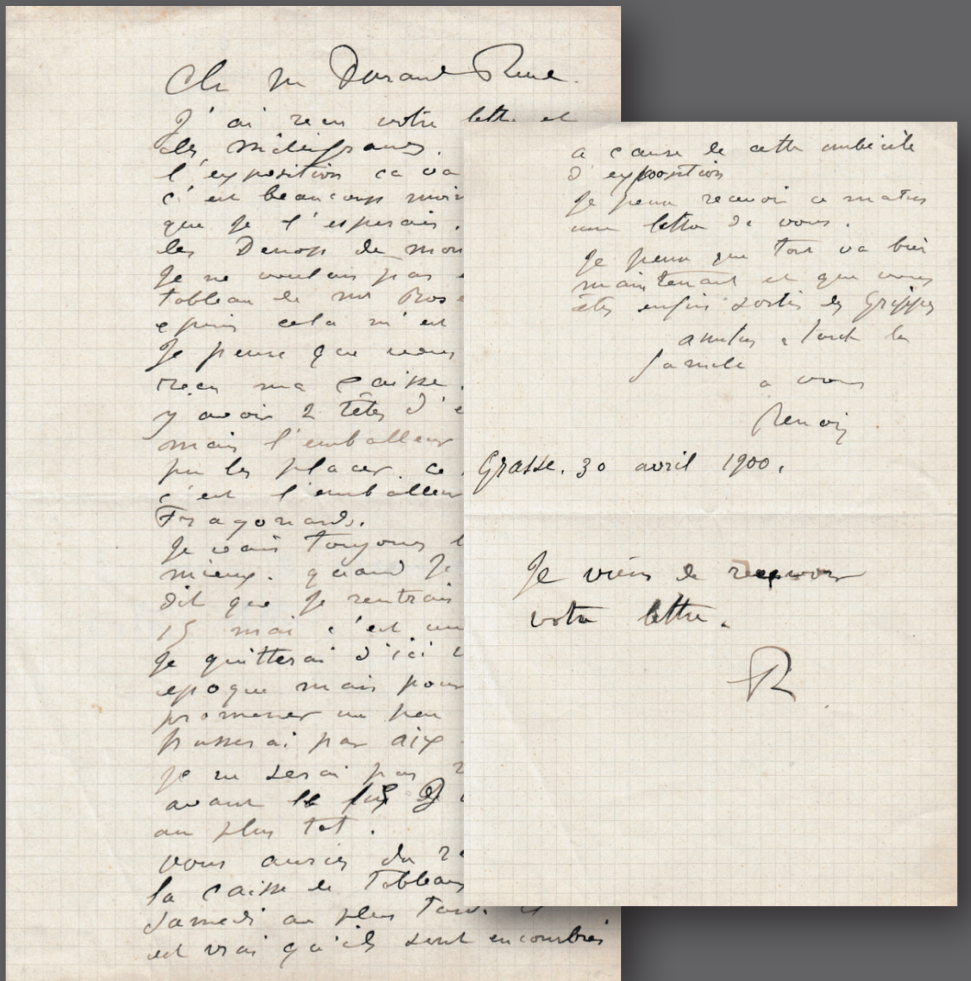 Ch M Durand Ruel.
J'ai recu votre lettre et
les mille francs.
l'exposition ca va
c'est beaucoup moin
que je l'esperais.
les de mon
Je ne voulais pas
tableau de mr
cela m'est
Je pense que vous
recu ma caisse.
y avoir 2 têtes d'e
mais l'emballeur
pu les placer. ce
c'est l'emballeur
Fragonards.
Je vais toujours
mieux. quand Je
dit que Je rentrais
15 mai c'est un
Je quitterai d'ici
epoque mais pour
promener un peu
passerai par aix
Je ne serai pas
avant le
au plus tot.
vous auries du
la caisse de Tableaux
Samedi au plus tard. il
est vrai qu'ils sont encombrés
a cause de cette imbécile
d'exposition
Je pense recevoir ce matin
une lettre de vous.
Je pense que tout va bien
maintenant et que vous
êtes enfin sortis des Grippes
amities a toute la
famile
a vous
Renoir
Grasse. 30 avril 1900.
Je viens de recevoir
votre lettre.
R